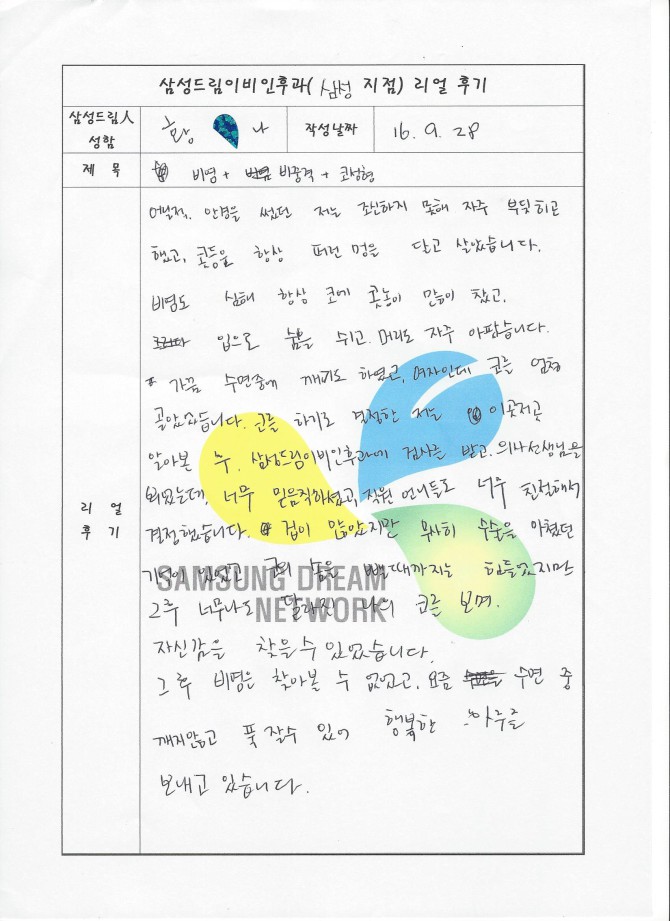 삼성드림이비인후과( 삼성 지점) 리얼 후기
삼성드림人
성함
황 나
작성날짜
16. 9. 28
제 목
비염 + 비중격 + 코성형
리 얼
후 기
어릴적, 안경을 썼던 저는 조신하지 못해 자주 부딪히곤
했고, 콧등을 항상 퍼런 멍을 달고 살았습니다.
비염도 심해 항상 코에 콧농이 많이 찼고,
입으로 숨을 쉬고. 머리도 자주 아팠습니다.
가끔 수면중에 깨기도 하였고, 여자인데 코를 엄청
골았었습니다. 코를 하기로 결정한 저는 이곳저곳
알아본 후, 삼성드림이비인후과에 검사를 받고. 의사선생님을
뵈었는데, 너무 믿음직하셨고, 직원 언니들도 너무 친절해서
결정했습니다. 겁이 많았지만 무사히 수술을 마쳤던
기억이 있었고 코의 솜을 뺄때까지는 힘들었지만
그후 너무나도 달라진 나의 코를 보며.
자신감을 찾을수 있었습니다.
그 후 비염은 찾아볼 수 없었고, 요즘 수면 중
깨지않고 푹 잘수 있어 행복한 하루를
보내고 있습니다.
SAMSUNG DREAM
NETWORK